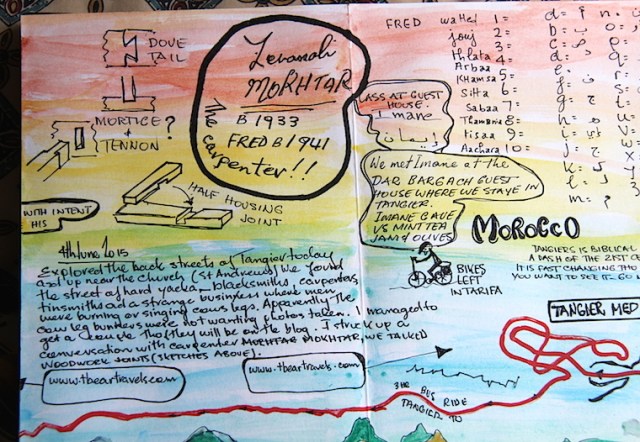 DOVE
TAIL
MORTICE ?
+
TENNON
HALF HOUSING
JOINT
WITH INTENT
HIS
MOKHTAR
B 1933
FRED B 1941
The carpenter!!
4th June 2015
Explored the back streets of Tangier today
and up near the church (St Andrews) We found
the street of hard yacka_ blacksmiths, carpenters,
tinsmiths and a strange business where men
were burning or singing cows legs. Apparently the
cow leg burners were not wanting photos taken. I managed to
get a couple tho they will be on the blog. I struck up a
conversation with carpenter MOKHTAR MOKHTAR, WE TALKED
WOODWORK JOINTS (SKETCHES ABOVE).
www.tbeartravels.com
www.tbeartravels.com
LASS AT GUEST
HOUSE.
Imane
إيمان
We met Imane at the
DAR BARGACH GUEST
HOUSE WHERE WE STAYE IN
TANGIER.
IMANE GAVE
US MINT TEA
JAM & OLIVES
BIKES
LEFT
IN TARIFA
FRED
wahed 1=
jouj 2=
thlata 3=
Arbaa 4=
Khamsa 5=
Sitta 6=
Sabaa 7=
Thamania 8=
Tisaa 9=
Aachara 10=
MOROCCO
TANGIERS IS BIBLICAL
A DASH OF THE 21ST CE
IT IS FAST CHANGING THO
YOU WANT TO SEE IT GO
TANGIER, MED
THE BUS RIDE
TANGIER TO